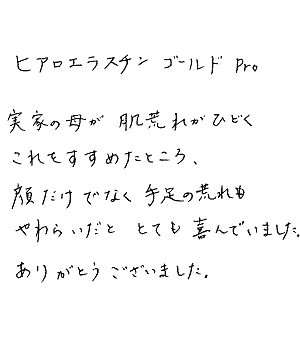 ヒアロエラスチン ゴールド Pro
実家の母が 肌荒れがひどく
これをすすめたところ、
顔だけでなく 手足の荒れも
やわらいだと とても 喜んでいました。
ありがとうございました。